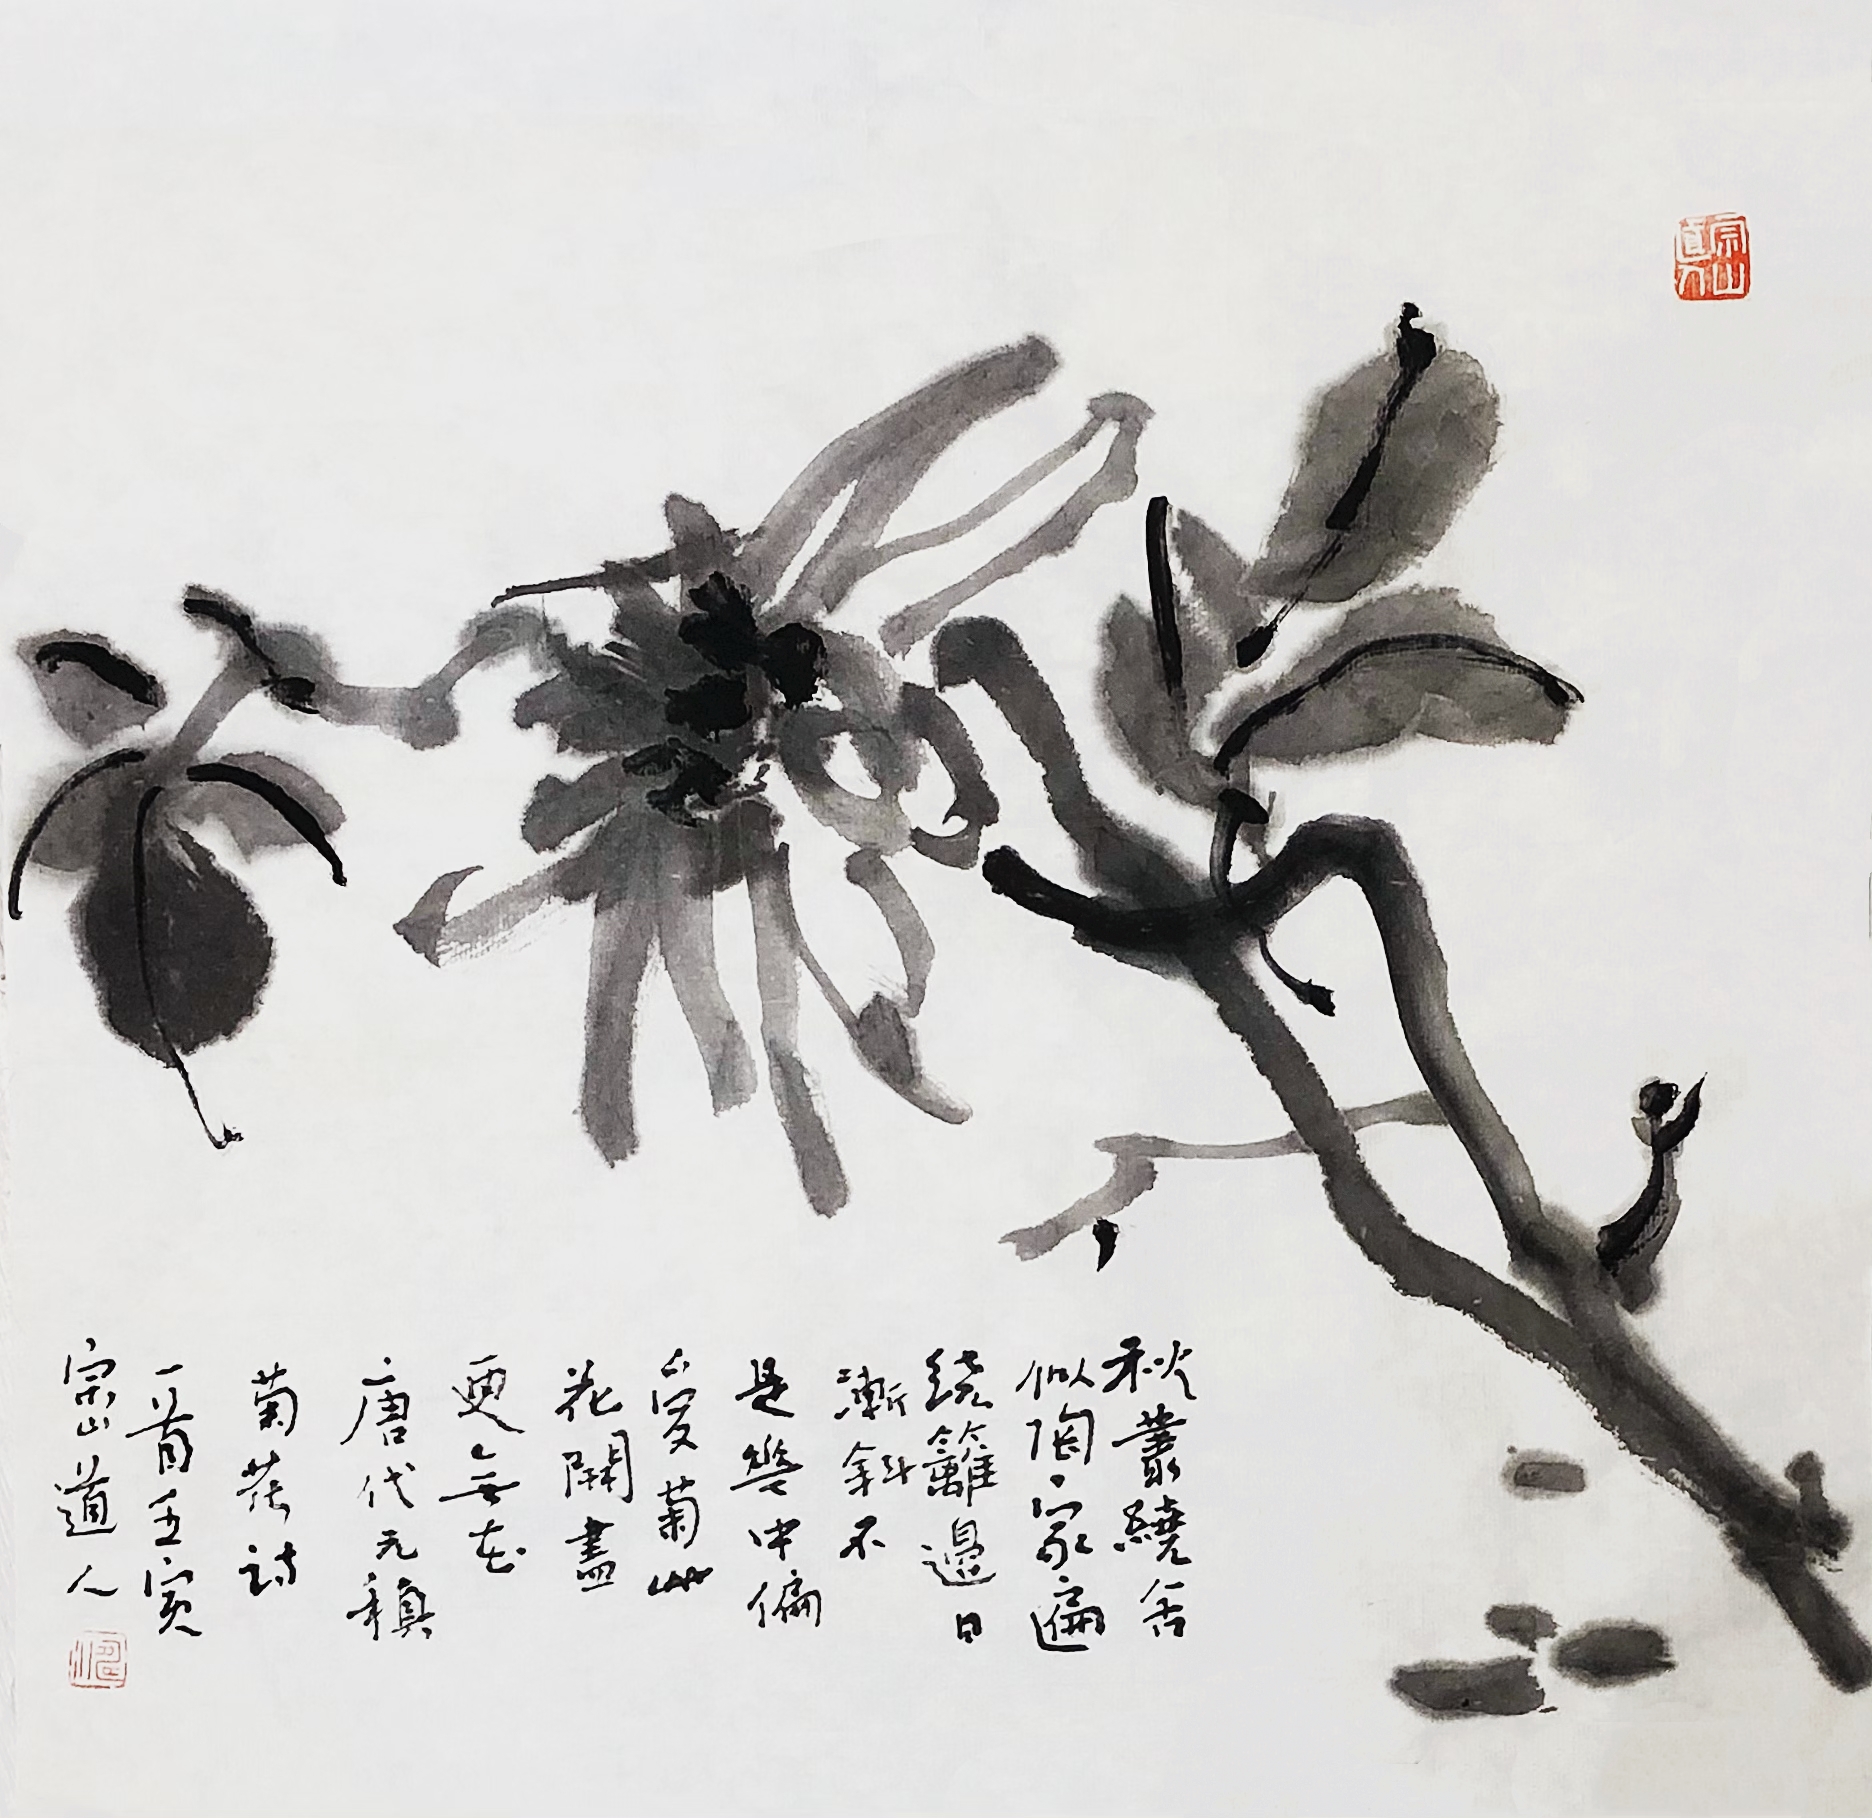 宗山道人
秋叢繞舍
似陶家遍
繞籬邊日
漸斜不
是花中偏
愛菊此
花開盡
更無花
唐代元稹
菊花詩
一首壬寅
宗山道人